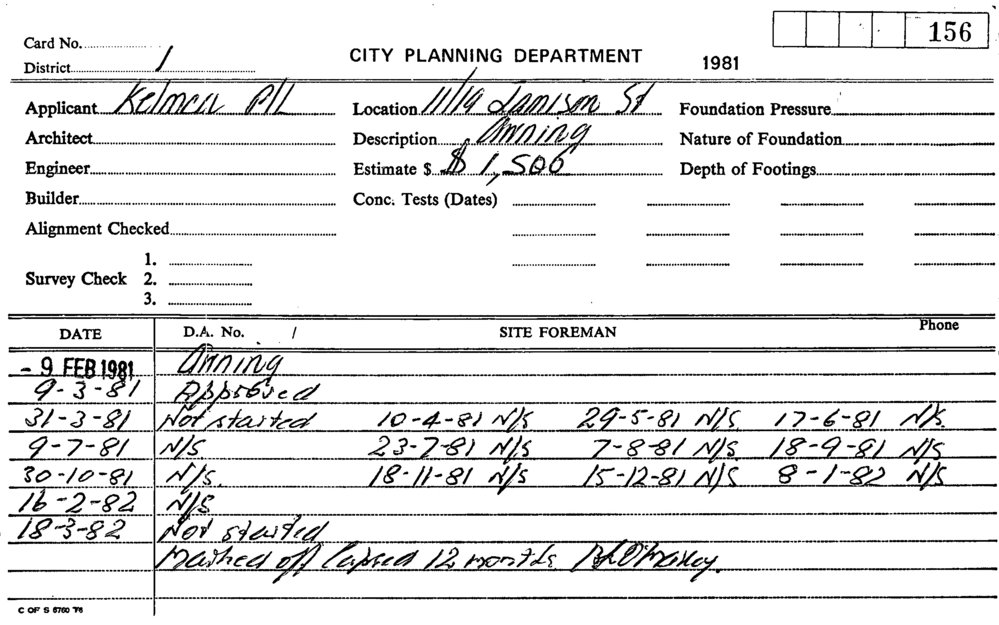 156
Card No.
CITY PLANNING DEPARTMENT 1981
District 1
Applicant Kelmca P/L Location 11/19 Jamison St Foundation Pressure
Architect Description Awning Nature of Foundation
Engineer Estimate $ $ 1,500 Depth of Footings
Builder Conc. Tests (Dates)
Alignment Checked
1.
Survey Check 2.
3.
DATE D.A. No. / SITE FOREMAN Phone
- 9 FEB 1981 Awning
9-3-81 Approved
31-3-81 Not started 10-4-81 N/S 29-5-81 N/S 17-6-81 N/S
9-7-81 N/S 23-7-81 N/S 7-8-81 N/S 18-9-81 N/S
30-10-81 N/S. 18-11-81 N/S 15-12-81 N/S 8-1-82 N/S
16-2-82 N/S
18-3-82 Not started
Marked off lapsed 12 months
C OF S 6760 76